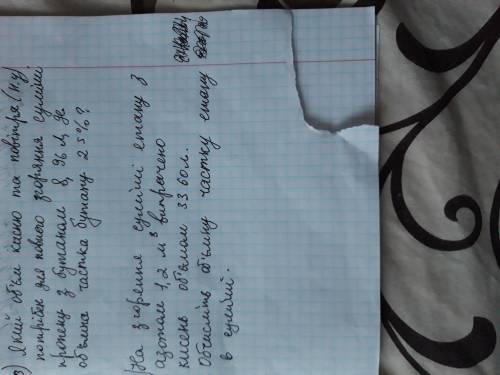 3) Який об'єм кисню та повітря (н.у)
потрібен для повного згоряння суміші
пропену з бутаном 8,96 л, де
об'ємна частка бутану 25%?
На згорення суміші етану з
азотом 1,2 м³ витрачено
кисень об'ємом 3360 л.
Обчисліть об'ємну частку етану
в суміші.